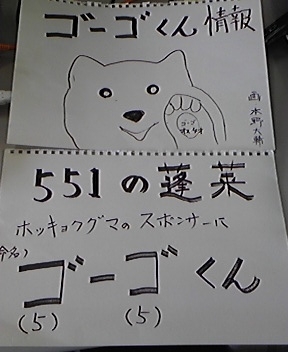 ゴーゴくん情報
ゴーゴ
画 水野大輔
551の蓬莱
ホッキョクグマのスポンサーに
命名)
ゴーゴくん
(5) (5)